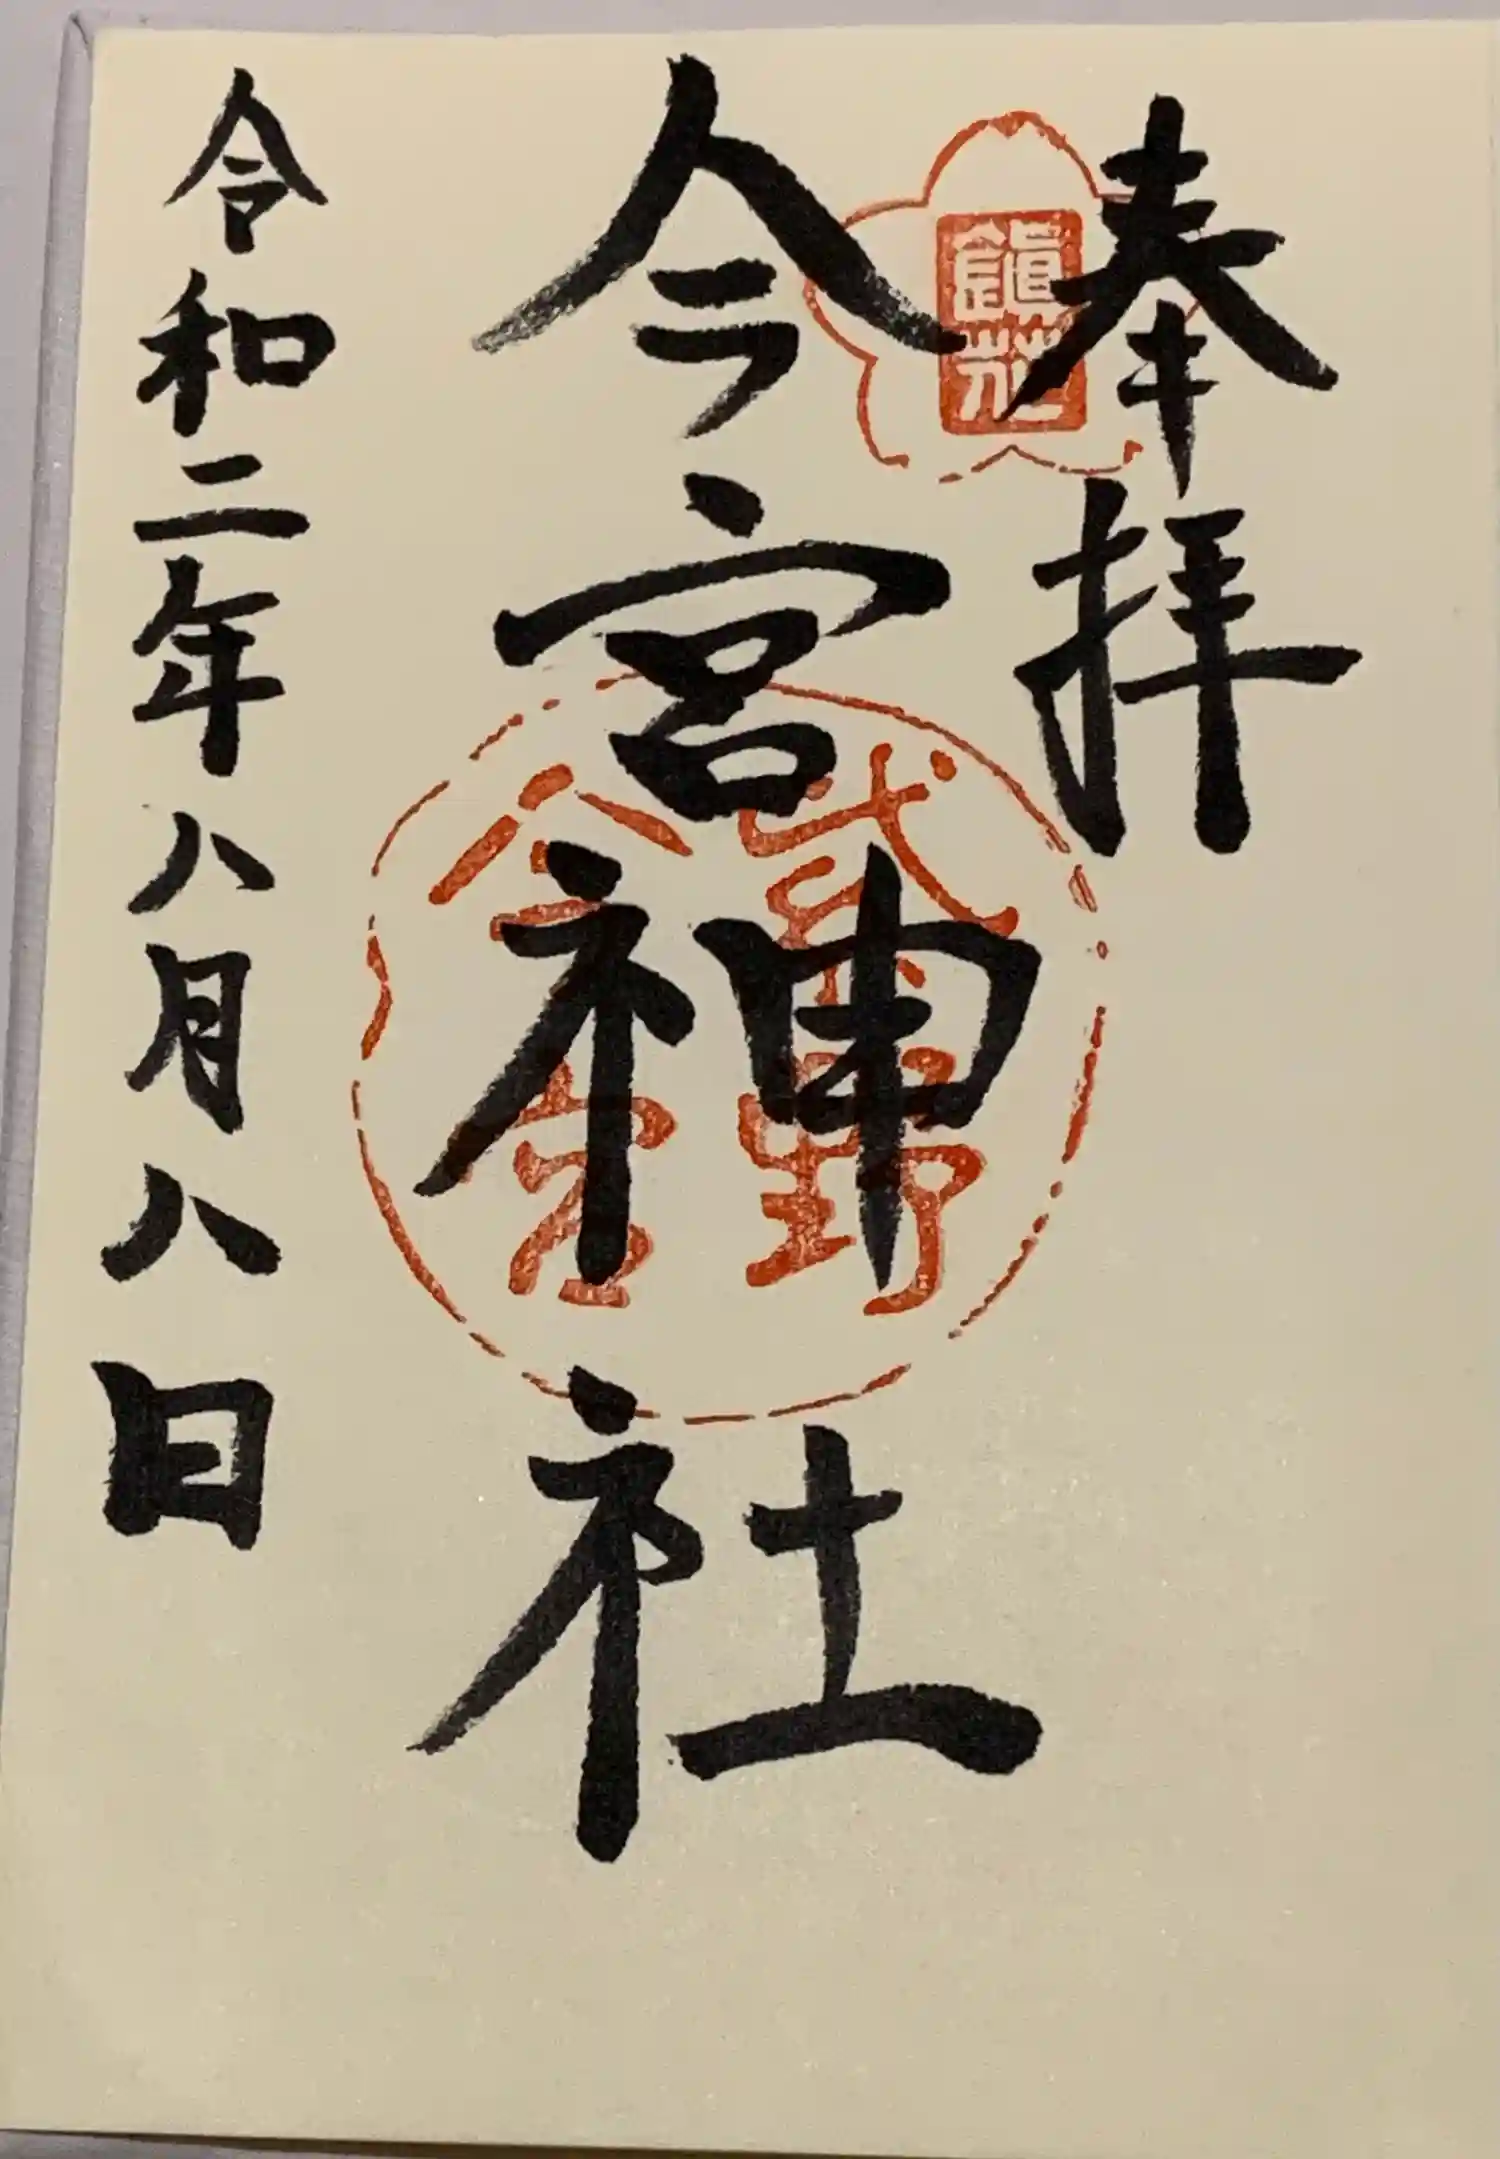 奉拝
今宮神社
武蔵野
今宮
令和二年八月八日